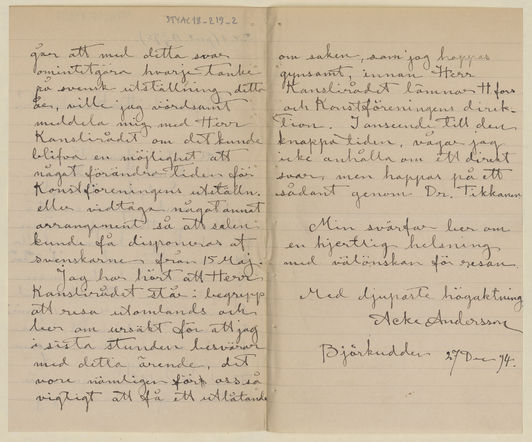 STYAC 18-219-2
går att med detta svar
omintetgöra hvarje tanke
på svensk utställning detta
år, ville jag vördsamt
meddela mig med Herr
Kanslirådet om det kunde
blifva en möjlighet att
något förändra tiden för
Konstföreningens utställn.
eller vidtaga något annat
arrangement så att salen
kunde få disponeras af
svenskarne från 15 Maj.
Jag har hört att Herr
Kanslirådet står i begrepp
att resa utomlands och
ber om ursäkt för att jag
i sista stunden besvärar
med detta ärende, det
vore nämligen för oss så
vigtigt att få ett utlåtande
om saken, som jag hoppas
gynsamt, innan Herr
Kanslirådet lämnar Hfors
och Konstföreningens direk-
tion. I anseende till den
knappa tiden, vågar jag
icke anhålla om ett direkt
svar, men hoppas på ett
sådant genom Dr. Tikkanen
Min svärfar ber om
en hjertlig helsning
med välönskan för resan
Med djupaste högaktning
Acke Andersson
Björkudden 27 Dec 94.